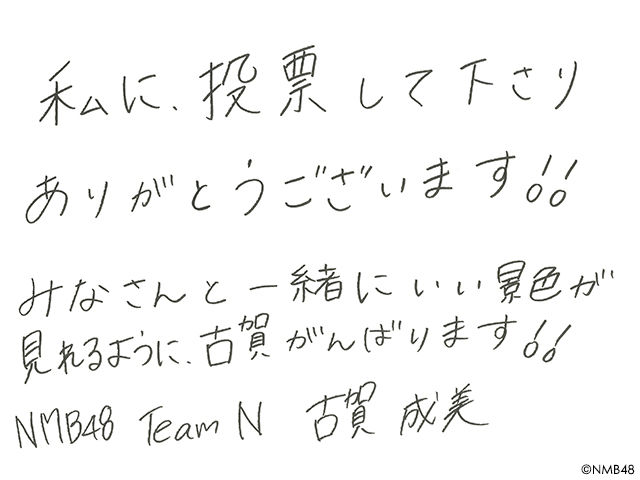 私に、投票して下さり
ありがとうございます!!
みなさんと一緒にいい景色が
見れるように、古賀がんばります!!
NMB48 Team N 古賀 成美
©NMB48